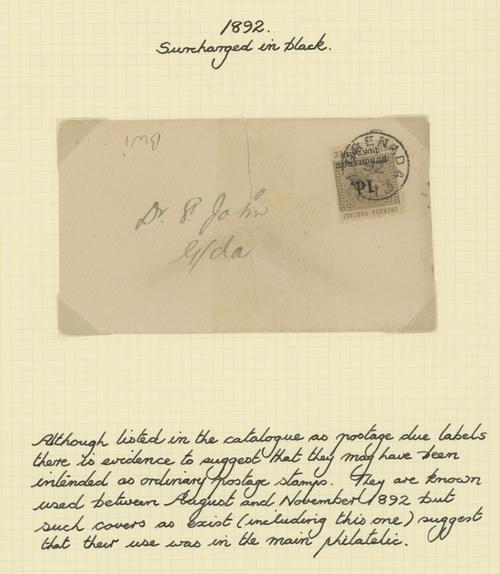 1892.
Surcharged in black.
BWI
GRENADA
SURCHARGE
POSTAGE
1d.
GRENADA POSTAGE
Dr. P. John
G/da
Although listed in the catalogue as postage due labels
there is evidence to suggest that they may have been
intended as ordinary postage stamps. They are known
used between August and November 1892 but
such covers as exist (including this one) suggest
that their use was in the main philatelic.